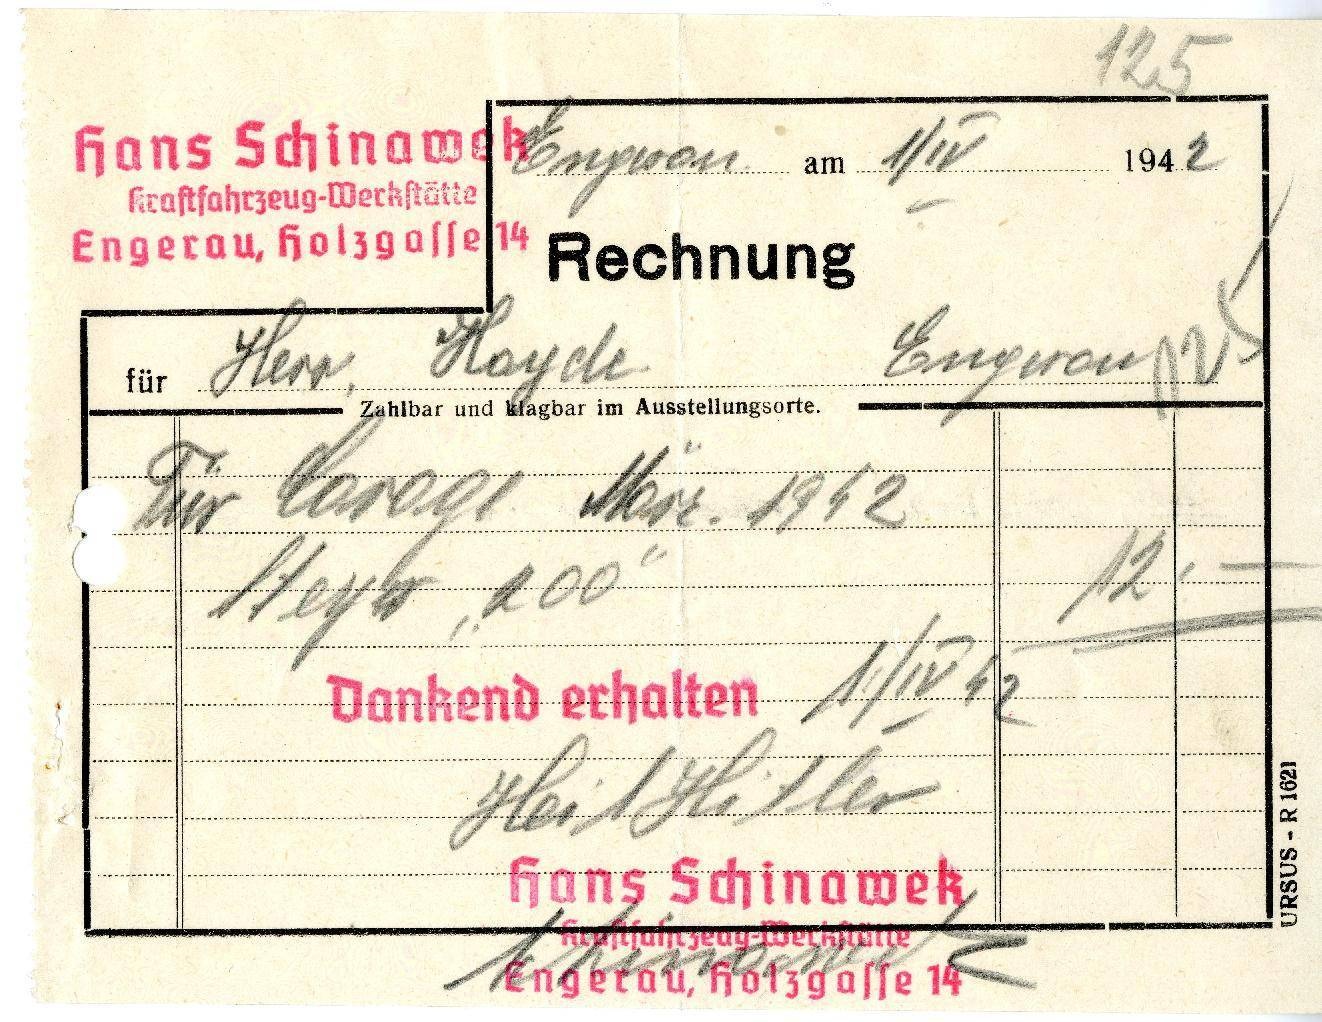 125
Hans Schinawek
Kraftfahrzeug-Werkstätte
Engerau, Holzgasse 14
Engerau am 1/IV 1942
Rechnung
für Herr Hayde Engerau
Zahlbar und klagbar im Ausstellungsorte.
Für Garage März 1942
Steyr „200“ 12.—
Dankend erhalten 1/IV 42
Heil Hitler
Hans Schinawek
Kraftfahrzeug-Werkstätte
Engerau, Holzgasse 14
Schinawek
URSUS - R 1621